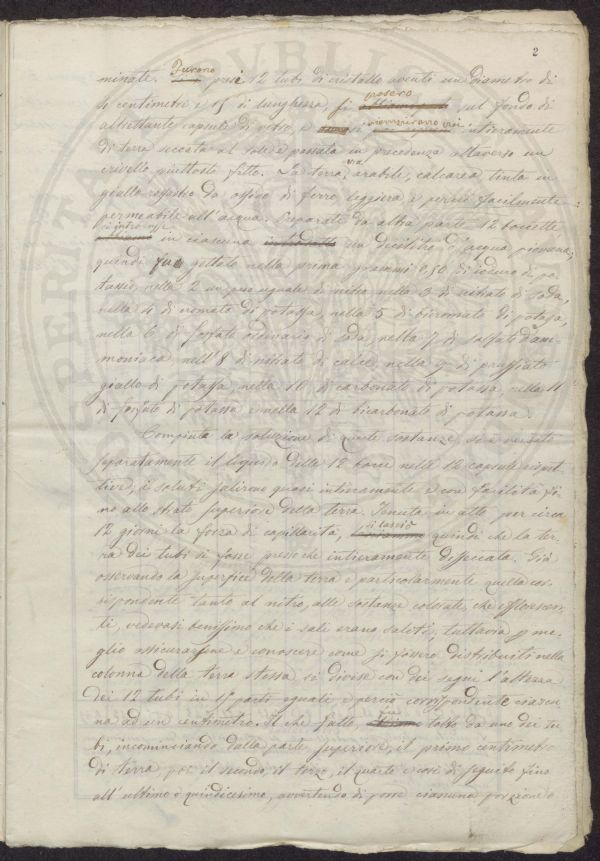 2
minate. Furono presi 12 tubi di cristallo avente un diametro di
centimetri e 15 di lunghezza, si posero sul fondo di
altrettante capsule di vetro, e si riempirono poi intieramente
di terra seccata al sole e passata in precedenza attraverso un
crivello piuttosto fitto. La terra era arabile, calcarea, tinta in
giallo rossastro da ossido di ferro, leggiera, e perciò facilmente
permeabile all'acqua. Preparate da altra parte 12 boccette
si introdusse in ciascuna un decilitro d'acqua piovana,
quindi fu gettato nella prima grammi 0,50 di ioduro di po-
tassio, nella 2 un peso eguale di nitro, nella 3 di nitrato di soda,
nella 4 di cromato di potassa, nella 5 di bicromato di potassa,
nella 6 di fosfato ordinario di soda, nella 7 di solfato d'am-
moniaca nell'8 di nitrato di calce, nella 9 di prussiato
giallo di potassa, nella 10 di carbonato di potassa nella 11
di fosfato di potassa e nella 12 di bicarbonato di potassa.
Compiuta la soluzione di queste sostanze, si è versato
separatamente il liquido delle 12 bocce nelle 12 capsule
i soluti salirono quasi intieramente e con facilità fi-
no allo strato superiore della terra. Tenuta in atto per circa
12 giorni la forza di capillarità, si lasciò quindi che la ter-
ra dei tubi si fosse pressochè intieramente disseccata. Già
osservando la superficie della terra e particolarmente quella cor-
rispondente tanto al nitro, alle sostanze colorate, che efflorescen-
ti, vedevasi benissimo che i sali erano saliti, tuttavia p me-
glio assicurarsene e conoscere come si fossero distribuiti nella
colonna della terra stessa si divise con dei segni l'altezza
dei 12 tubi in 15 parti eguali, e perciò corrispondente ciascu-
na ad un centimetro. Il che fatto, tolto da uno dei tu-
bi, incominciando dalla parte superiore, il primo centimetro
di terra, poi il secondo, il terzo, il quarto e così di seguito fino
all'ultimo o quindicesimo, avvertendo di porre ciascuna porzione